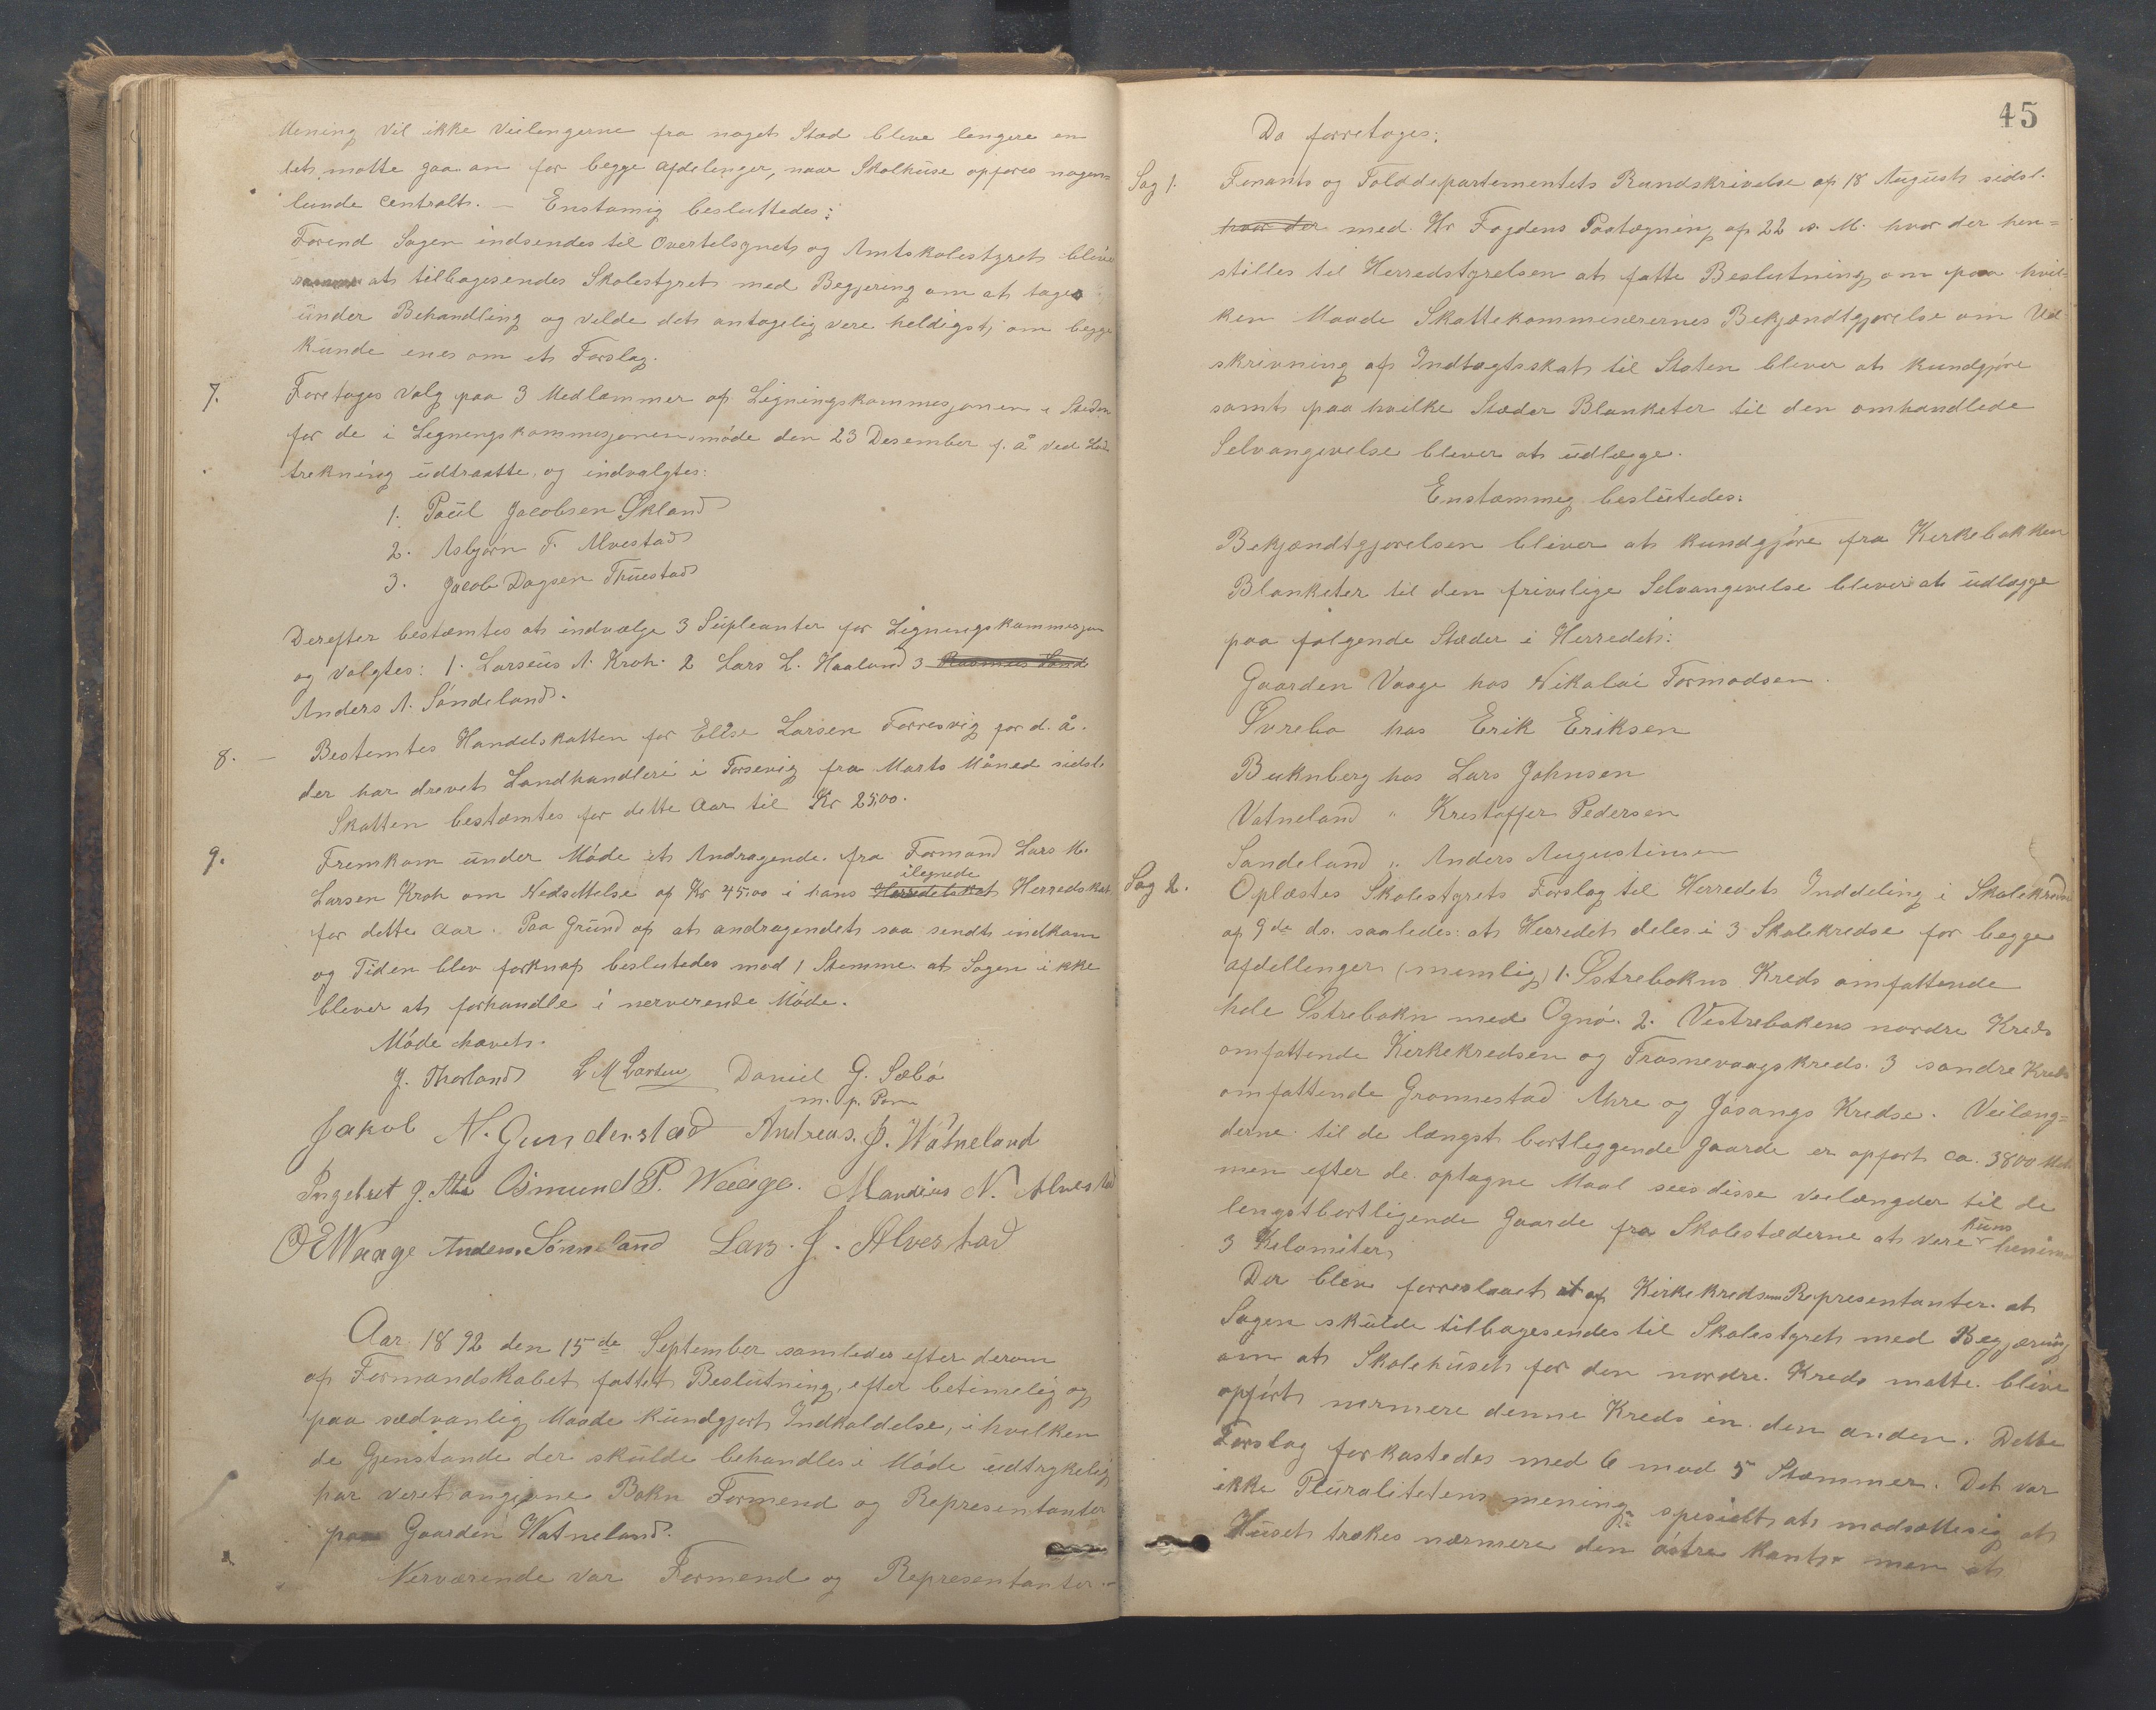 Mening vil ikke Veilengerne fra noget Stæd blive lengere en
det matte gaa an for begge afdelinger, naar Skolhuse opføres nogen-
lunde centralt. — Enstæmig besluttedes:
Forend Sagen indsendes til Overtelsynet og Amtskolestyret bliver
at tilbagesendes Skolestyret med Begjering om at tages
under Behandling og vilde det antagelig vere heldigst, om begge
kunde enes om et Forslag.
7. Foretages Valg paa 3 Medlæmmer af Ligningskommesjonen i Steden
for de i Legningskommesjonens møde den 23 Desember f. å ved Lod
trekning udtraatte, og indvalgtes:
1. Paul Jacobsen Økland
2. Asbjørn T. Alvestad
3. Jacob Dagsen Thuestad
Derefter bestæmtes at indvælge 3 Supleanter for Ligningskommesjon
og valgtes: 1. Larseus A. Kroh. 2 Lars L. Haaland 3 Rasmus Sand
Anders A. Søndeland.
8. — Bestemtes Handelskatten for Elise Larsen Forresvig for d. å.
der har drevet Landhandleri i Forsevig fra Marts Måned sidstl.
Skatten bestæmtes for dette Aar til Kr 25,00.
9. Fremkom under Møde et Andragende fra Formand Lars M.
ilegnede
Larsen Kroh om Nedsettelse af Kr 45,00 i hans Herredskat Herredskat
for dette Aar. Paa Grund af at andragendet saa sendt indkom
og Tiden blev forknap beslutedes mod 1 Stemme at Sagen ikke
blever at forhandle i nerverende Møde.
Møde hævet.
J. Thorland L M Larsen Daniel G. Sæbø
m. p. Pen
Jakob N. Gunderstad Andreas. J. Watneland
Ingebret J. Are Osmund P. Waage. Mandius N. Alvestad
O E Waage Anders Sønneland Lars. J. Alvestad
Aar 1892 den 15de September samledes efter derom
af Formandskabet fattet Beslutning, efter betimelig og
paa sædvanlig Maade kundgjort Indkaldelse, i hvilken
de Gjenstande der skulde behandles i Møde udtrykelig
har veret angivne Bokn Formend og Representanter
paa Gaarden Watneland.
Nerværende var Formend og Representanter.
45
Da forretages:
Sag 1. Fenants og Tolddepartementets Rundskrivelse af 18 August sidstl.
hvor der med Hr Fogdens Paategning af 22 s. M. hvor der hen=
stilles til Herredstyrelsen at fatte Beslutning om paa hvil-
ken Maade Skattekommesærernes Bekjændtgjørelse om Ud
skrivning af Indtægtsskat til Staten blever at kundgjøre
samt paa hvilke Stæder Blanketer til den omhandlede
Selvangivelse blever at udlægge.
Enstæmmeg beslutedes:
Bekjændtgjørelsen bliver at kundgjøre fra Kerkebakken
Blanketer til den frivilige Selvangivelse blever at udlægge
paa følgende Stæder i Herredet:
Gaarden Vaage hos Nikolai Tormodsen.
Øvrebø hos Erik Eriksen
Buknberg hos Lars Johnsen
Vatneland " Krestoffer Pedersen
Sandeland " Anders Augustinsen
Sag 2. Oplæstes Skolestyrets Forslag til Herredets Inddeling i Skolekredse
af 9de ds. saaledes: at Herredet deles i 3 Skolekredse for begge
afdellinger (nemlig) 1. Østrebokns Kreds omfattende
hele Østrebokn med Ognø. 2. Vestrebokens nordre Kreds
omfattende Kerkekredsen og Trosnevaagskreds. 3 søndre Kreds
omfattende Gronnestad Ahre og Jøsangs Kredse. Veilæng=
derne til de længst bortleggende Gaarde er opført ca. 3800 Met.
men efter de optagne Maal sees disse veilængder til de
kuns
lengstbortligende Gaarde fra Skolestæderne at vere henimod
3 Kelometer.
Der blev forreslaaet at af Kirkekredsens Representanter at
Sagen skulde tilbagesendes til Skolestyret med Begjæring
om at Skolehuset for den nordre Kreds matte blive
opført nærmere denne Kreds en den anden. Dette
Forslag forkastedes med 6 mod 5 Stæmmer. Det var
ikke Pluralitetens mening spesielt at modsættesig at
Huset trækes nærmere den østre kant men at